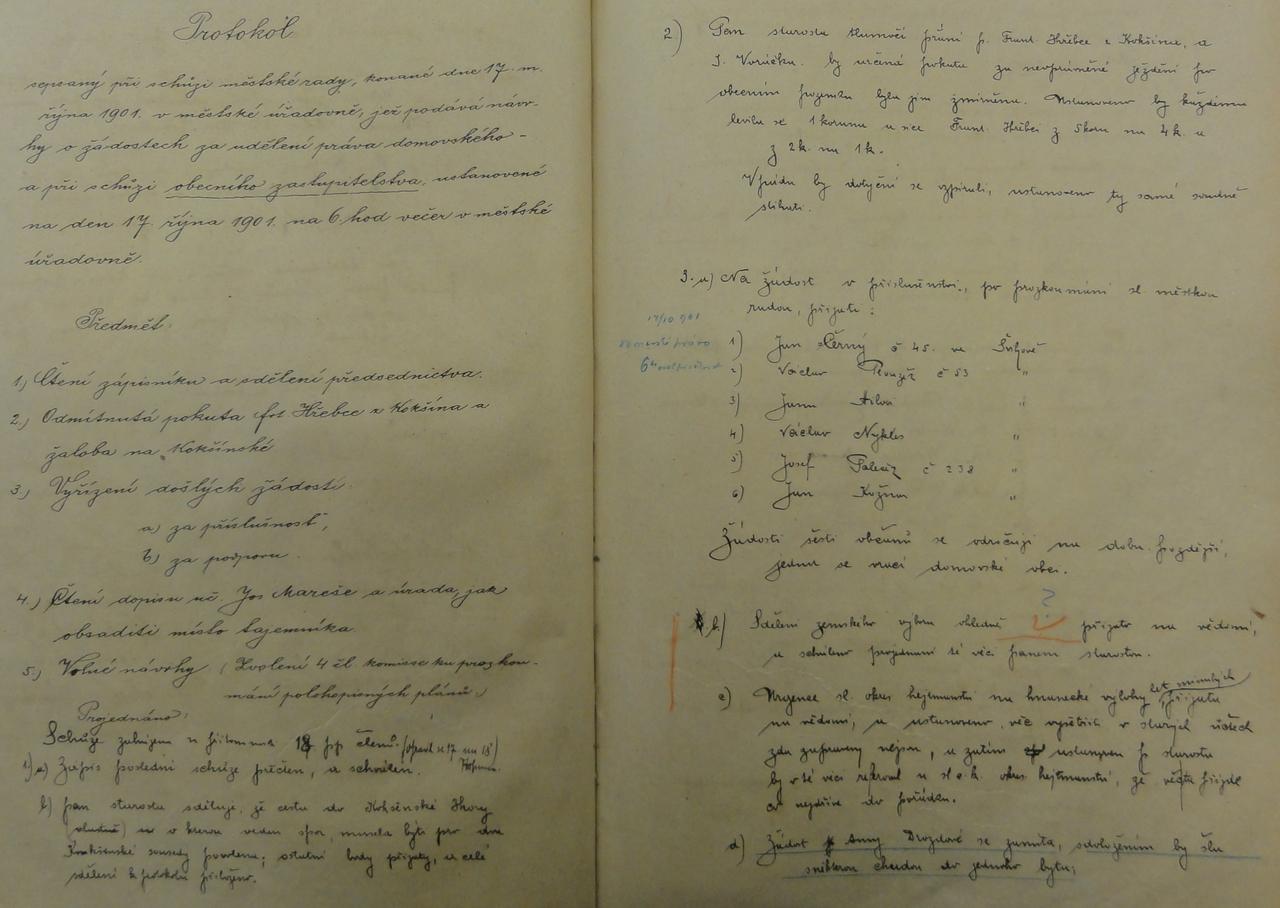 Protokol
sepsaný při schůzi městské rady, konané dne 17. m.
října 1901. v městské úřadovně, jež podává návr-
hy o žádostech za udělení práva domovského -
a při schůzi obecního zastupitelstva, ustanovené
na den 17. října 1901. na 6. hod večer v městské
úřadovně.
Předmět:
1.) Čtení zápisníku a sdělení předsednictva.
2.) Odmítnutá pokuta frt Hřebce z Kokšína a
žaloba na Kokšínské
3.) Vyřízení došlých žádostí.
a) za příslušnost,
b) za podporu.
4.) Čtení dopisu uč. Jos Mareše a úrada, jak
obsaditi místo tajemníka.
5.) Volné návrhy (Zvolení 4 čl. komisse ku prozkou-
mání polohopisných plánů.)
Projednáno:
Schůze zahájena u přítomnosti 18 pp členů. (opravil z 17 na 18)
1) a) Zápis poslední schůze přečten, a schválen.
b) pan starosta sděluje, že cesta do Kokšínské Hory
o kterou veden spor, musela býti pro dva
Kokšínské sousedy povolena; ostatní body přijaty, a celé
sdělení k protokolu přiloženo.
2) Pan starosta tlumočí přání p. Frant. Hřebce z Kokšína, a
J. Voráčka. by určená pokuta za neoprávněné ježdění po
obecním pozemku byla jim zmírněna. Ustanoveno by každému
slevila se 1 koruna a sice Frant. Hřebci z 5 korun na 4 k. a
z 2 k. na 1 k.
V pádu by dotyční se vzpírali, ustanoveno ty samé soudně
stíhati.
3. a) Na žádost v příslušenství, po prozkoumání sl. městskou
radou, přijati:
17/10 901
domovské právo
1) Jan Černý č 45. ve Švihově
2) Václav č 53 "
3) Jana "
4) Václav Nykles "
5) Josef č 238 "
6) Jan Kožena "
Žádosti šesti občanů se odročují na dobu pozdější,
jedna se vrací domovské obci.
b.) Sdělení zemského výboru ohledně ? přijato na vědomí,
a schváleno projednání té věci panem starostou.
c) Urgence sl. okres hejtmanství na hasičské výlohy let minulých přijata
na vědomí, a ustanoveno, věc vyšetřiti v starých účtech
zda zapraveny nejsou, a zatím ustanoven p. starosta
by v té věci referoval u sl. c. k. okres hejtmanství, že věc přijde
co nejdříve do pořádku.
d) Žádost Anny Drozdové se zamítá, s doložením by šla
s některou chudou do jednoho bytu;